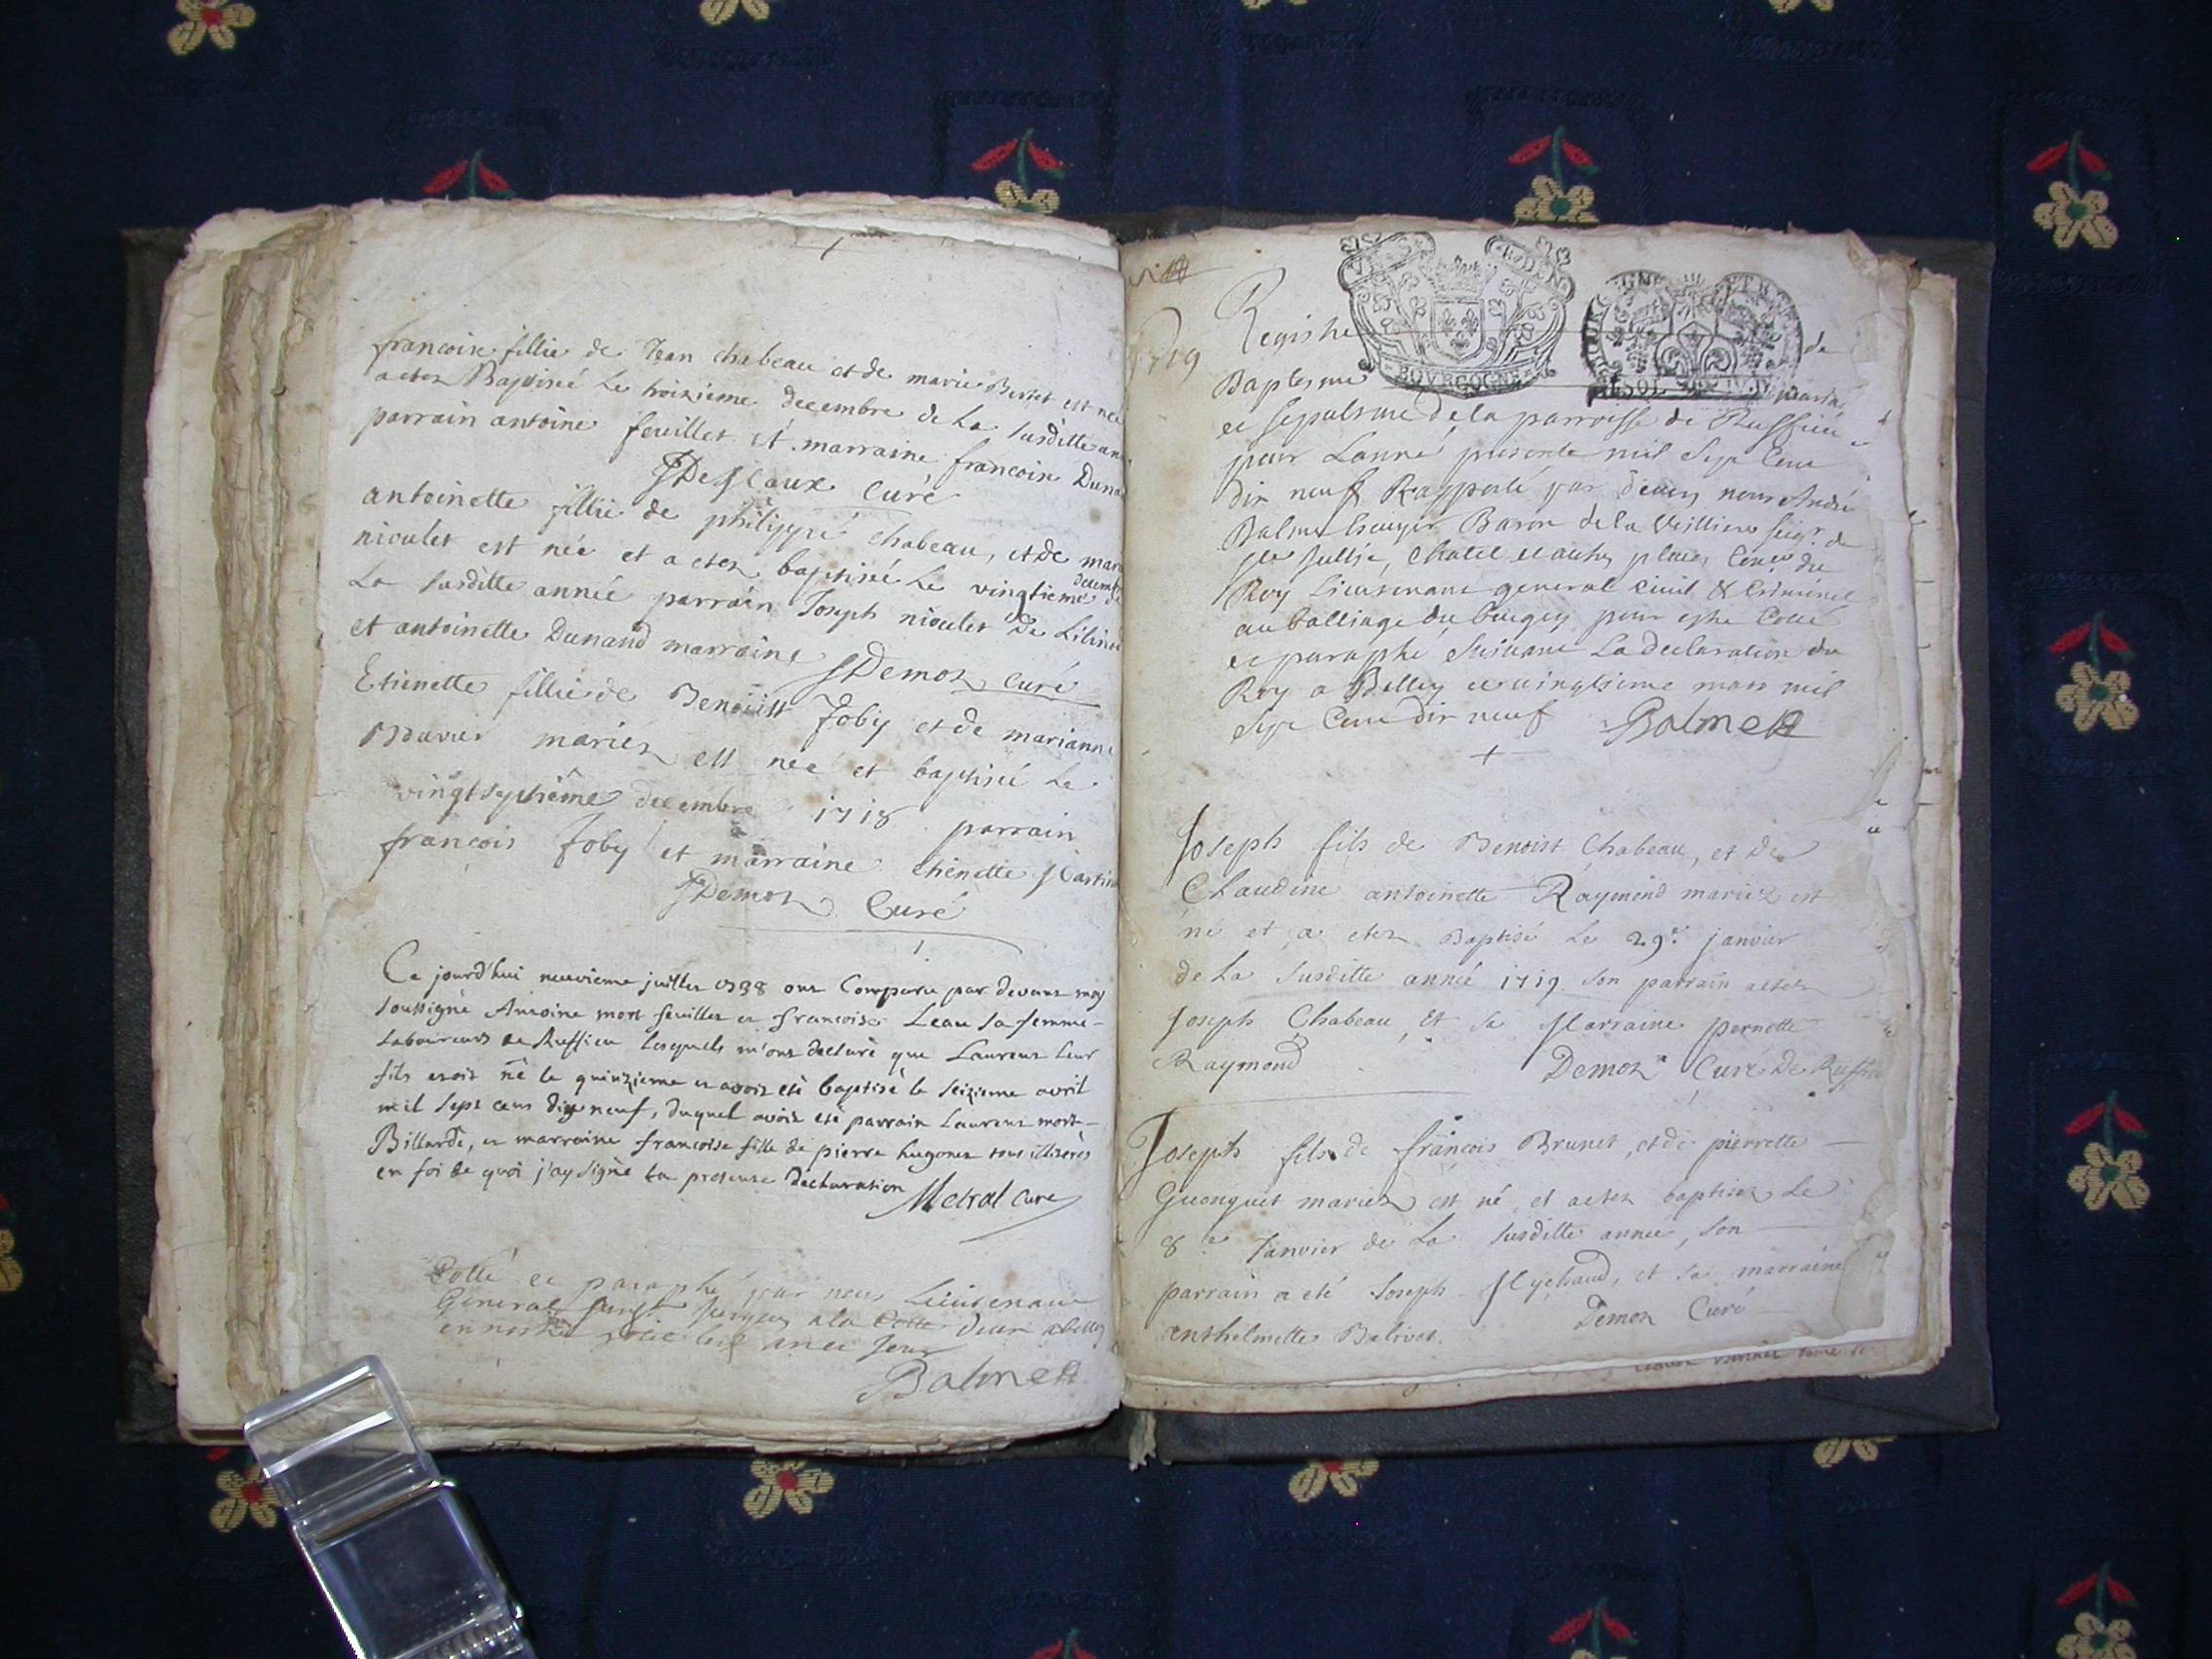 francoise fillie de Jean chabeau et de marie Berret est née
a etez Baptisé le troizieme decembre de la susditte an
parrain antoine feuillet et marraine francoise Duna
Curé
antoinette fillie de philippe chabeau, et de mar
niculet est née et a etez baptisé le vingtieme decemb
La susditte année parrain Joseph niculet de
et antoinette Dunand marraine Demoz curé
Etienette fillie de Benoiist Joby et de marianne
mariez est neé et baptisé le
vingtseptiême decembre 1718 parrain
françois Joby et marraine etienette Martin
Demoz Curé
Ce jourd'hui neuvieme juillet 1738 ont Comparu par devant moy
soussigné Antoine mort feuillet et francoise Leau sa femme
Laboureurs de Ruffieu lesquels m'ont declaré que Laurent leur
fils etoit né le quinzieme et avoit eté baptisé le seizieme avril
mil sept cens dix neuf, duquel avoit eté parrain Laurent mort-
Billarde, et marraine francoise fille de pierre hugonet tous illiterés
en foi de quoi j'ay signé la presente declaration Metral curé
Cotté et paraphé par nous Lieutenant
General
Balme
1719
Registre de
Baptesme
BOVRGOGNE
et sepulture de la parroisse de Ruffieu
pour Lanné presente mil sept Cent
dix neuf Rapporté par devan nous André
Balme Escuyer Baron de la Veilliere seigr. de
Ste Jullie, Chatel et autres places Coner du
Roy Lieutenant general Civil & Criminel
au Balliage du bugey pour estre Cotté
et paraphé suivant La declaration du
Roy a Belley ce vingtieme mars mil
sept Cent dix neuf Balme
Joseph fils de Benoist Chabeau, et de
Claudine antoinette Raymond mariez est
né et a etez Baptisé le 29e janvier
de la susditte année 1719 son parrain a etez
Joseph Chabeau, et sa Marraine pernette
Raymond Demoz Curé de Ruffieu
Joseph fils de françois Brunet, et de pierrette
Guonguet mariez est né, et a etez baptisez le
8e Janvier de la susditte année, son
parrain a eté Joseph Mychaud, et sa marraine
anthelmette Balivet. Demoz Curé